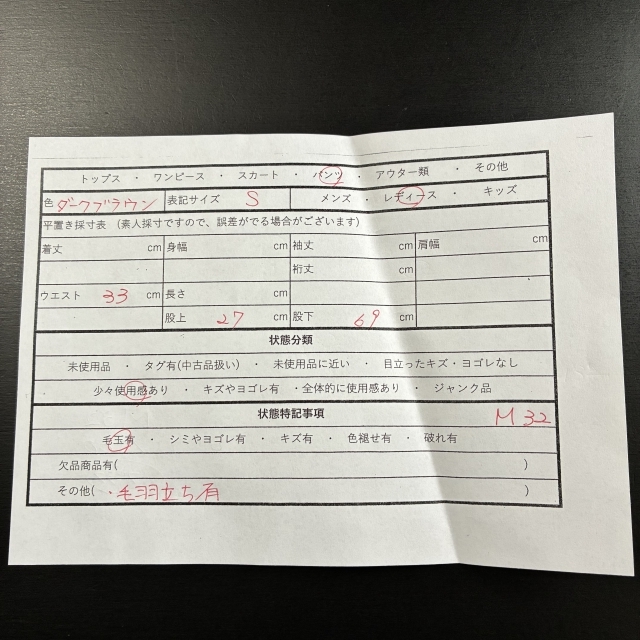 トップス ・ ワンピース ・ スカート ・ パンツ ・ アウター類 ・ その他
色 ダークブラウン 表記サイズ S メンズ ・ レディース ・ キッズ
平置き採寸表 (素人採寸ですので、誤差がでる場合がございます)
着丈 cm 身幅 cm 袖丈 cm 肩幅 cm
裄丈 cm
ウエスト 33 cm 長さ cm
股上 27 cm 股下 69 cm
状態分類
未使用品 ・ タグ有(中古品扱い) ・ 未使用品に近い ・ 目立ったキズ・ヨゴレなし
少々使用感あり ・ キズやヨゴレ有 ・全体的に使用感あり ・ ジャンク品
状態特記事項 M32
毛玉有 ・ シミやヨゴレ有 ・ キズ有 ・ 色褪せ有 ・ 破れ有
欠品商品有( )
その他( ・毛羽立ち有 )